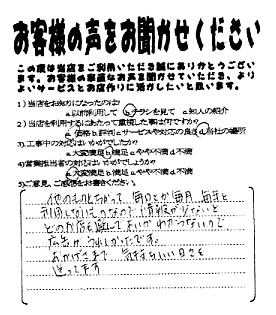 お客様の声をお聞かせください
この度は当店をご利用いただき誠にありがとうござい
ます。お客様の率直なお声を聞かせていただき、より
よいサービスとお店作りに活かしたいと思います。
1)当店をお知りになったのは?
a以前利用して bチラシを見て c知人の紹介
2)当店を利用するにあたって重視した事は何ですか?
a価格 b評判 cサービスや対応の良さ d当社の場所
3)工事中の対応はいかがでしたか?
a大変満足 b満足 cやや不満 d不満
4)営業担当者の対応はいかがでしょうか?
a大変満足 b満足 cやや不満 d不満
5)ご意見、ご感想をお書きください。
他のものとちがって 毎日とか毎月 毎年と
利用しないものなので 情報が少ないと
どのお店を選んでよいかわからないので
広告がうれしかったです。
おかげさまで 気持ちいい日々を
送ってます